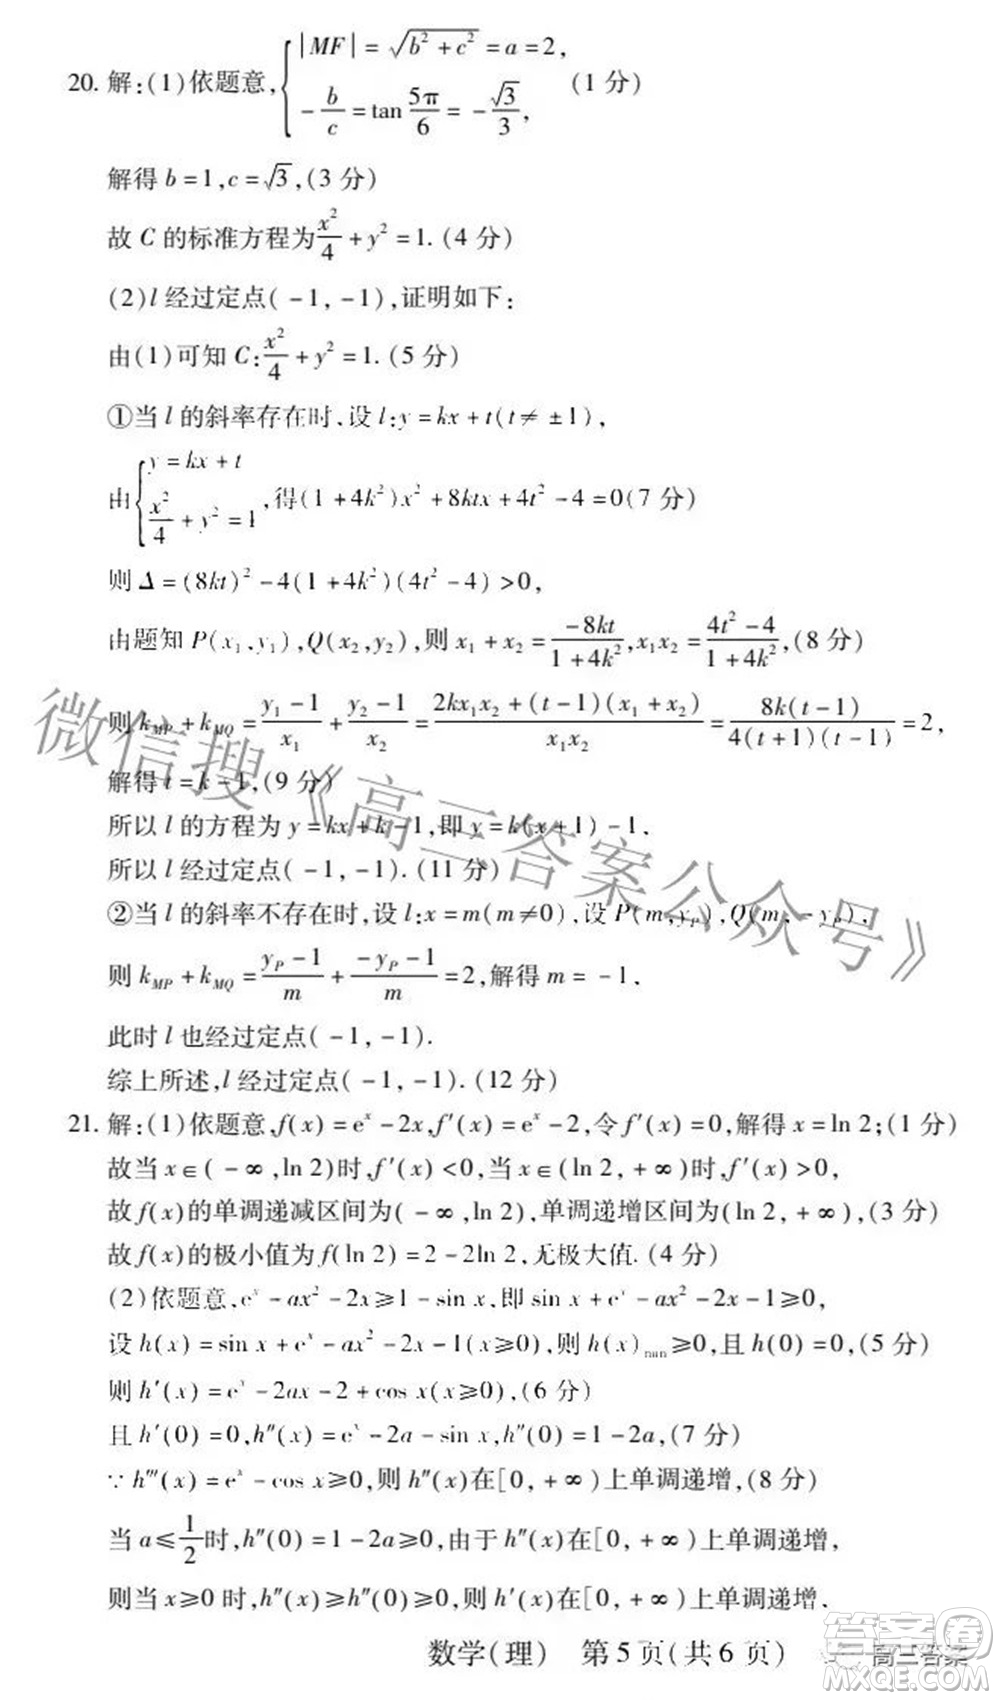 20. 解:(1)依题意, { |MF| = √(b² + c²) = a = 2, (1 分)
− b/c = tan 5π/6 = − √3/3,
解得 b = 1, c = √3, (3 分)
故 C 的标准方程为 x²/4 + y² = 1. (4 分)
(2) l 经过定点( − 1, − 1), 证明如下:
由(1)可知 C: x²/4 + y² = 1. (5 分)
①当 l 的斜率存在时, 设 l: y = kx + t(t ≠ ± 1),
由 { y = kx + t
x²/4 + y² = 1 , 得(1 + 4k²)x² + 8ktx + 4t² − 4 = 0(7 分)
则 Δ = (8kt)² − 4(1 + 4k²)(4t² − 4) > 0,
由题知 P(x₁, y₁), Q(x₂, y₂), 则 x₁ + x₂ = −8kt/(1 + 4k²), x₁x₂ = (4t² − 4)/(1 + 4k²), (8 分)
则 k_MP + k_MQ = (y₁ − 1)/x₁ + (y₂ − 1)/x₂ = (2kx₁x₂ + (t − 1)(x₁ + x₂))/(x₁x₂) = 8k(t − 1)/(4(t + 1)(t − 1)) = 2,
解得 t = k − 1, (9 分)
所以 l 的方程为 y = kx + k − 1, 即 y = k(x + 1) − 1.
所以 l 经过定点( − 1, − 1). (11 分)
②当 l 的斜率不存在时, 设 l: x = m(m ≠ 0), 设 P(m, y_P), Q(m, − y_P),
则 k_MP + k_MQ = (y_P − 1)/m + (−y_P − 1)/m = 2, 解得 m = − 1.
此时 l 也经过定点( − 1, − 1).
综上所述, l 经过定点( − 1, − 1). (12 分)
21. 解:(1)依题意, f(x) = eˣ − 2x, f′(x) = eˣ − 2, 令 f′(x) = 0, 解得 x = ln 2; (1 分)
故当 x ∈ ( − ∞, ln 2)时, f′(x) < 0, 当 x ∈ (ln 2, + ∞)时, f′(x) > 0,
故 f(x)的单调递减区间为( − ∞, ln 2), 单调递增区间为(ln 2, + ∞), (3 分)
故 f(x)的极小值为 f(ln 2) = 2 − 2ln 2, 无极大值. (4 分)
(2)依题意, eˣ − ax² − 2x ≥ 1 − sin x, 即 sin x + eˣ − ax² − 2x − 1 ≥ 0,
设 h(x) = sin x + eˣ − ax² − 2x − 1(x ≥ 0), 则 h(x)_min ≥ 0, 且 h(0) = 0, (5 分)
则 h′(x) = eˣ − 2ax − 2 + cos x(x ≥ 0), (6 分)
且 h′(0) = 0, h″(x) = eˣ − 2a − sin x, h″(0) = 1 − 2a, (7 分)
∵ h‴(x) = eˣ − cos x ≥ 0, 则 h″(x)在[0, + ∞)上单调递增, (8 分)
当 a ≤ 1/2 时, h″(0) = 1 − 2a ≥ 0, 由于 h″(x)在[0, + ∞)上单调递增,
则当 x ≥ 0 时, h″(x) ≥ h″(0) ≥ 0, 则 h′(x)在[0, + ∞)上单调递增.
数学(理) 第 5 页(共 6 页)
微信搜《高三答案公众号》
高三答案
答案圈
MXQE.COM